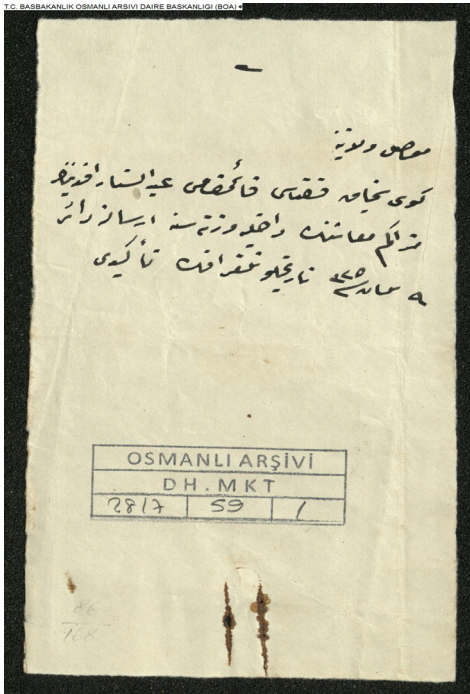 T.C. BASBAKANLIK OSMANLI ARSIVI DAIRE BASKANLIGI (BOA)
موصل ولايتنه
كوى سنجاق قضاسى قائممقامى عبد الستار افندينك
متراكم معاشنك داخليه ارسالنه دائر
٩ تاريخلو تلغرافك تأكيدى
OSMANLI ARŞİVİ
DH.MKT
2817 59 1